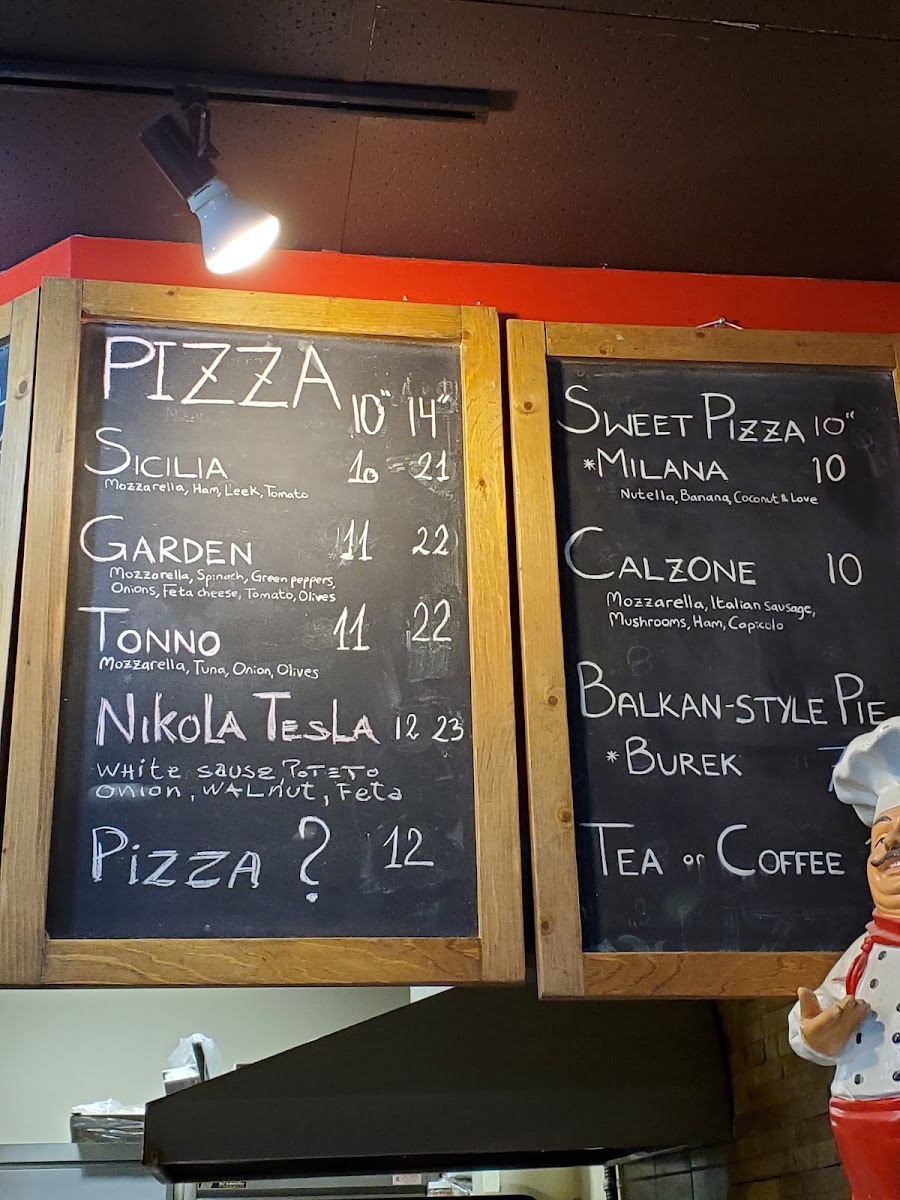 PIZZA
10" 14"
SICILIA 10 21
Mozzarella, Ham, Leek, Tomato
GARDEN 11 22
Mozzarella, Spinach, Green peppers,
Onions, Feta cheese, Tomato, Olives
TONNO 11 22
Mozzarella, Tuna, Onion, Olives
NIKOLA TESLA 12 23
WHITE SAUSE, POTETO
ONION, WALNUT, FETA
PIZZA ? 12
SWEET PIZZA 10"
*MILANA 10
Nutella, Banana, Coconut & Love
CALZONE 10
Mozzarella, Italian sausage,
Mushrooms, Ham, Capicolo
BALKAN-STYLE PIE
*BUREK
TEA or COFFEE